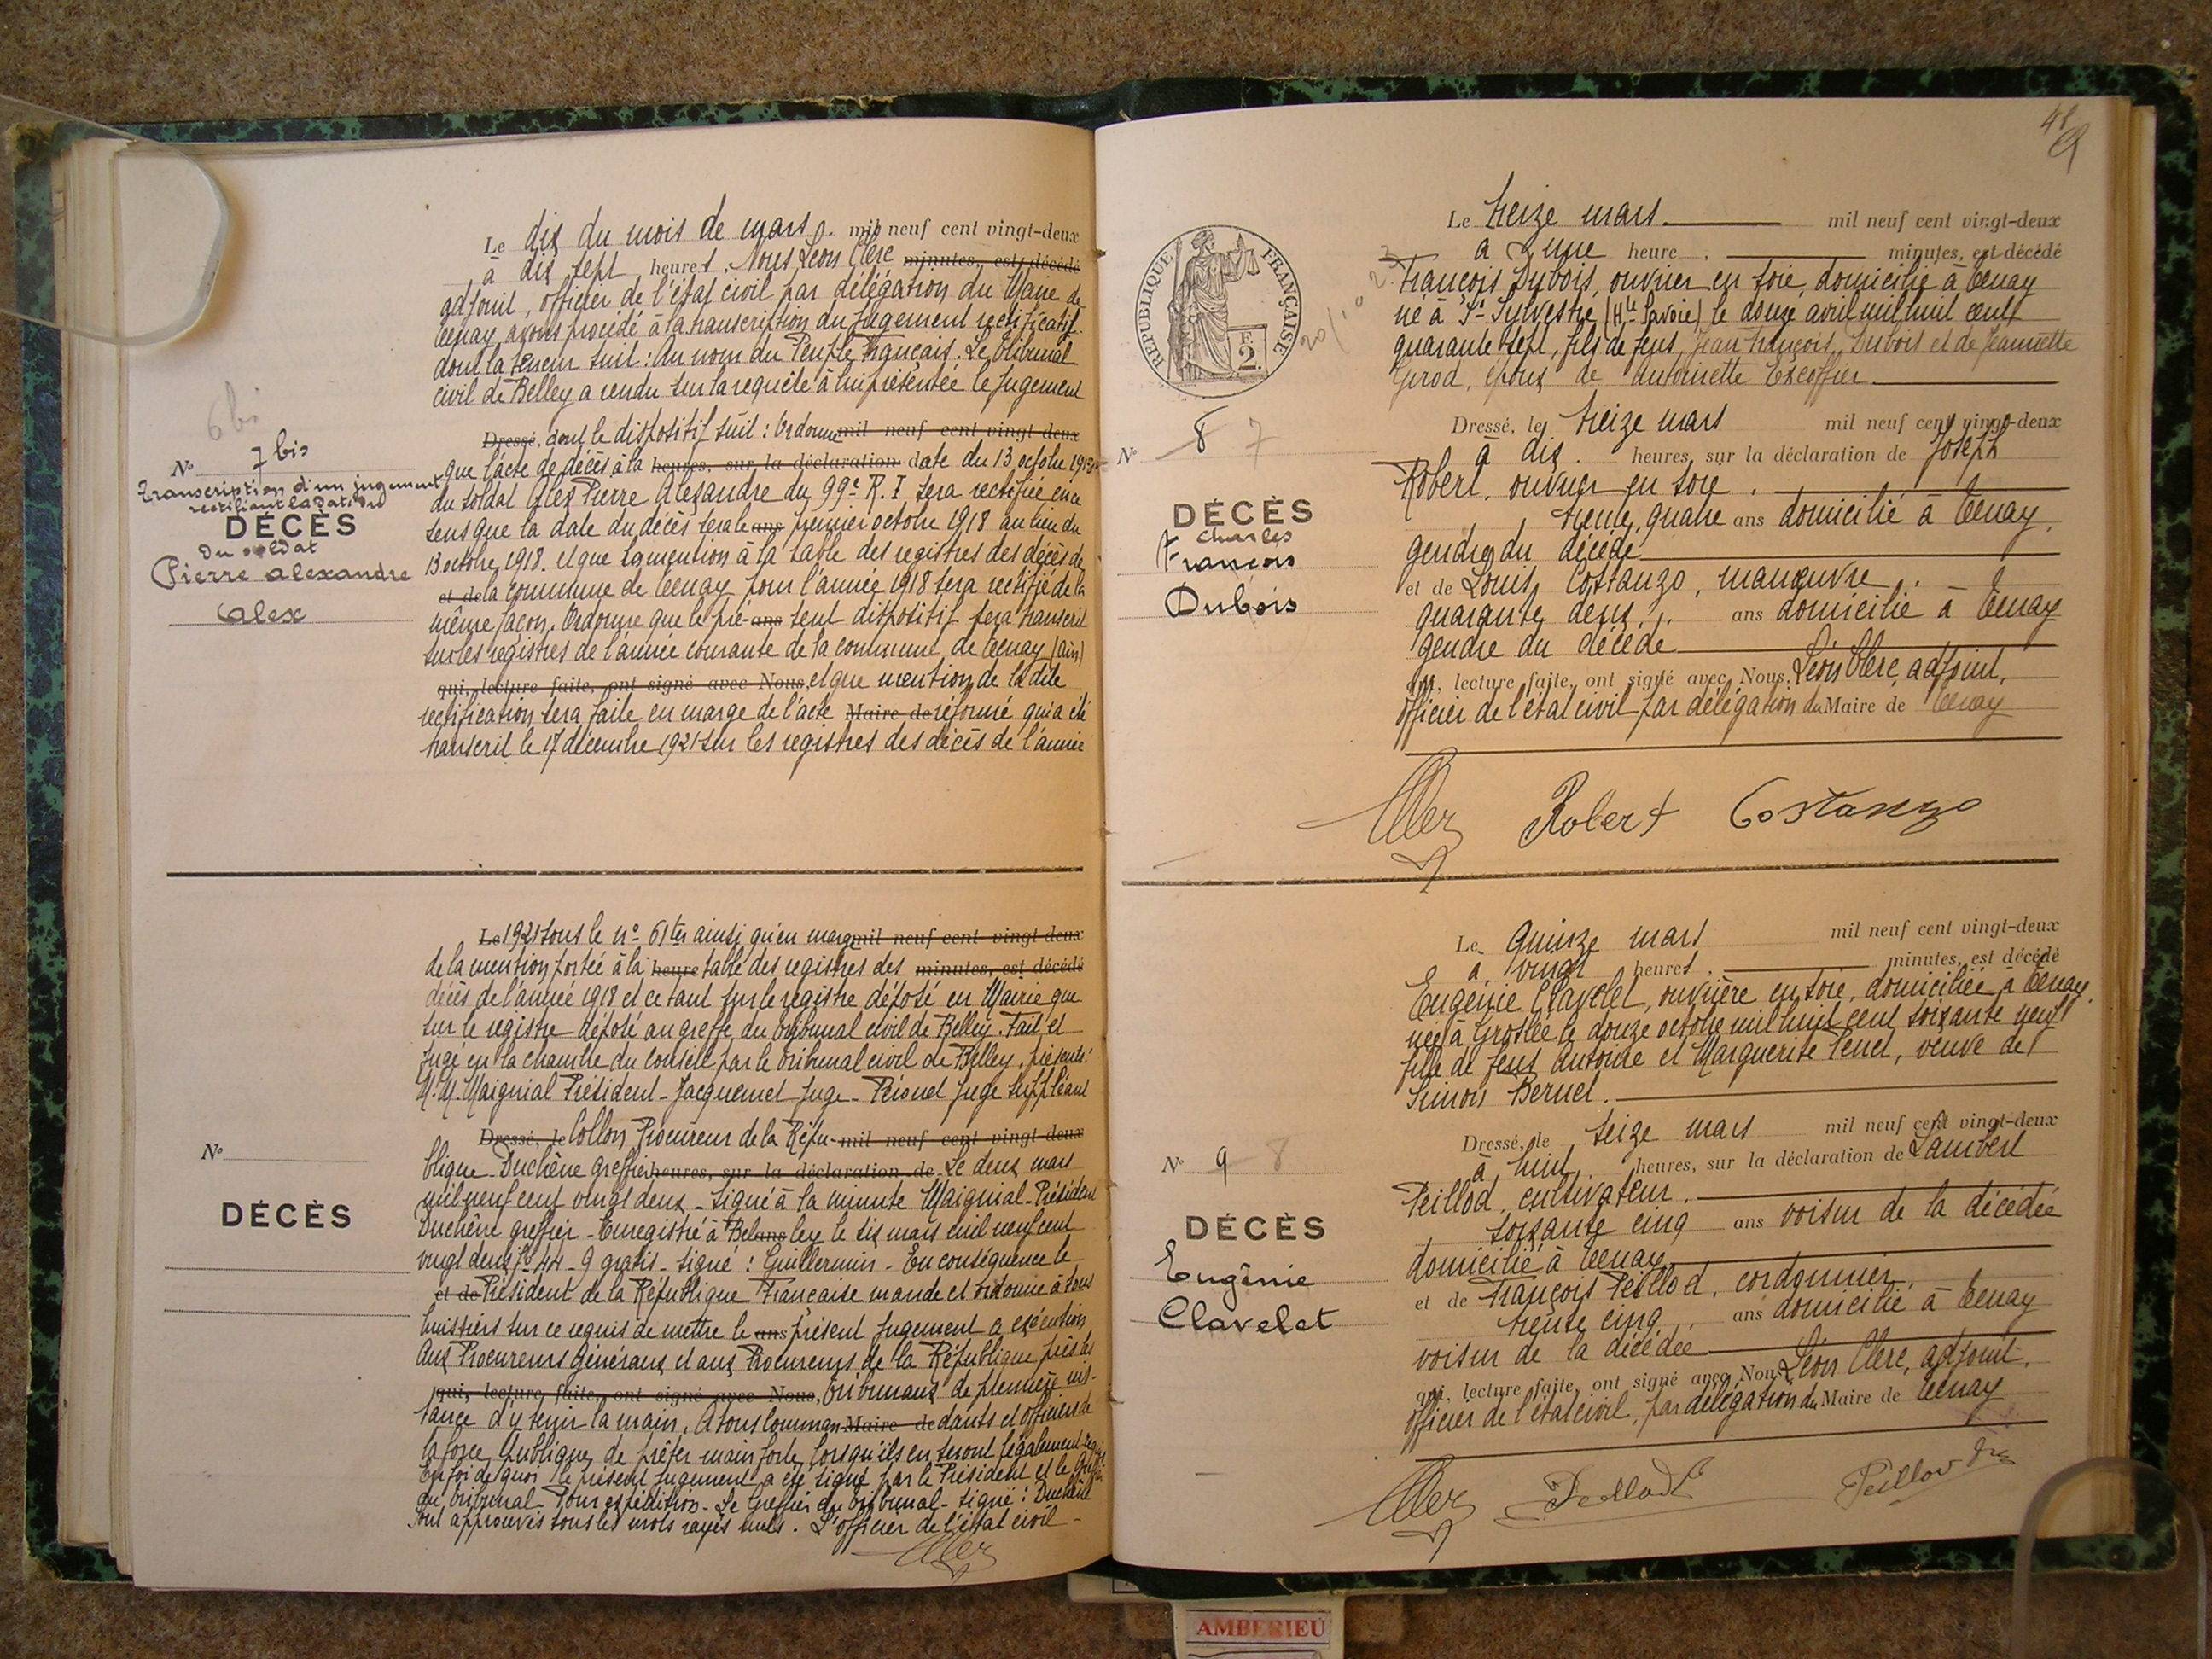 Le dix du mois de mars mil neuf cent vingt-deux
à dix sept heures, Nous Léon Clerc minutes, est décédé
adjoint, officier de l'état civil par délégation du Maire de
Tenay, avons procédé à la transcription du jugement rectificatif
dont la teneur suit : Au nom du Peuple Français. Le Tribunal
civil de Belley a rendu sur la requête à lui présentée le jugement
Dressé, dont le dispositif suit : Ordonne mil neuf cent vingt deux
que l'acte de décès à la heures, sur la déclaration date du 13 octobre 1918
du soldat Alex Pierre Alexandre du 99e R.I. sera rectifiée en ce
sens que la date du décès sera le ans premier octobre 1918 au lieu du
13 octobre 1918. et que la mention à la table des registres des décès de
et de la commune de Tenay pour l'année 1918 sera rectifié de la
même façon. Ordonne que le pré- ans sent dispositif sera transcrit
sur les registres de l'année courante de la commune de Tenay (Ain)
qui, lecture faite, ont signé avec Nous, et que mention de la dite
rectification sera faite en marge de l'acte Maire de réformé qui a été
transcrit le 17 décembre 1921 sur les registres des décès de l'année
6 bis
No 7 bis
Transcription d'un jugement
rectifiant la date du
DÉCÈS
du soldat
Pierre Alexandre
Alex
Le 1921 sous le no 61ter ainsi qu'en marge mil neuf cent vingt deux
de la mention portée à la heure table des registres des minutes, est décédé
décès de l'année 1918 et ce tant sur le registre déposé en Mairie que
sur le registre déposé au greffe du Tribunal civil de Belley. Fait et
jugé en la chambre du conseil par le Tribunal civil de Belley, présents :
M.M. Maignial Président - Jacquemet juge - Peisnel juge suppléant
Dressé, le Collon Procureur de la Répu- mil neuf cent vingt deux
blique Duchêne greffier heures, sur la déclaration de Le deux mars
mil neuf cent vingt deux - signé à la minute Maignial - Président
Duchêne greffier - Enregistré à Bel ans ley le six mars mil neuf cent
vingt deux fo 44 - 9 gratis - signé : Guillermin - En conséquence le
et de Président de la République Française mande et ordonne à tous
huissiers sur ce requis de mettre le ans présent jugement a exécution
Aux Procureurs Généraux et aux Procureurs de la République près les
qui, lecture faite, ont signé avec Nous, Tribunaux de première ins-
tance d'y tenir la main, A tous comman Maire de dants et officiers de
la force publique, de prêter main forte lorsqu'ils en seront légalement requis
En foi de quoi le présent jugement a été signé par le Président et le Greffier
du Tribunal - Pour expédition - Le Greffier du Tribunal - signé : Duchêne
Sont approuvés tous les mots rayés nuls. L'officier de l'état civil -
No
DÉCÈS
48
9
RÉPUBLIQUE FRANÇAISE
2F.
Le treize mars mil neuf cent vingt-deux
à une heure minutes, est décédé
François Dubois, ouvrier en soie, domicilié à Tenay
né à St Sylvestre (Hte Savoie) le douze avril mil huit cent
quarante sept, fils de feus Jean François Dubois et de Jeannette
Girod, époux de Antoinette Excoffier
Dressé, le treize mars mil neuf cent vingt-deux
à dix heures, sur la déclaration de Joseph
Robert, ouvrier en soie.
trente quatre ans domicilié à Tenay,
gendre du décédé
et de Louis Costanzo, manœuvre,
quarante deux ans domicilié à Tenay
gendre du décédé
qui, lecture faite, ont signé avec Nous, Léon Clerc, adjoint,
officier de l'état civil par délégation du Maire de Tenay
Robert Costanzo
No 8 7
DÉCÈS
Charles
François
Dubois
Le quinze mars mil neuf cent vingt-deux
à vingt heures minutes, est décédé
Eugénie Clavelet, ouvrière en soie, domiciliée à Tenay,
née à Groslée le douze octobre mil huit cent soixante neuf
fille de feus Antoine et Marguerite Penet, veuve de
Simon Bernet.
Dressé, le seize mars mil neuf cent vingt-deux
à huit heures, sur la déclaration de Lambert
Peillod, cultivateur.
soixante cinq ans voisin de la décédée
domicilié à Tenay
et de François Peillod, cordonnier,
trente cinq ans domicilié à Tenay
voisin de la décédée
qui, lecture faite, ont signé avec Nous, Léon Clerc, adjoint,
officier de l'état civil, par délégation du Maire de Tenay
Peillod Peillod Frs
No 9 8
DÉCÈS
Eugénie
Clavelet
AMBERIEU